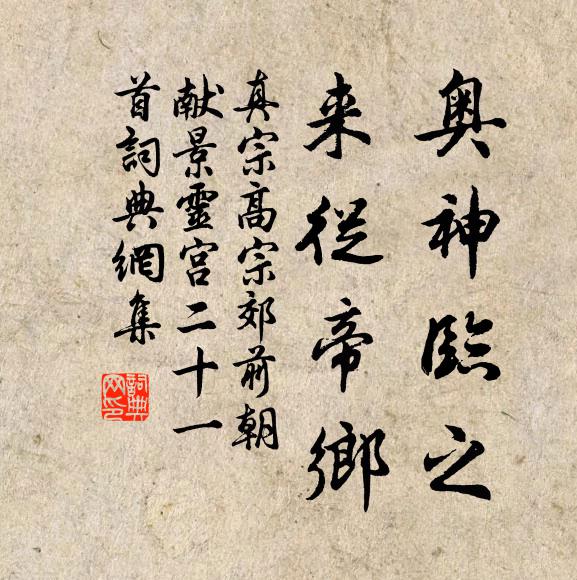 奥神臨之
来從帝鄉
真宗高宗郊前朝
献景靈宮二十一
首詞典網集
詞典网印